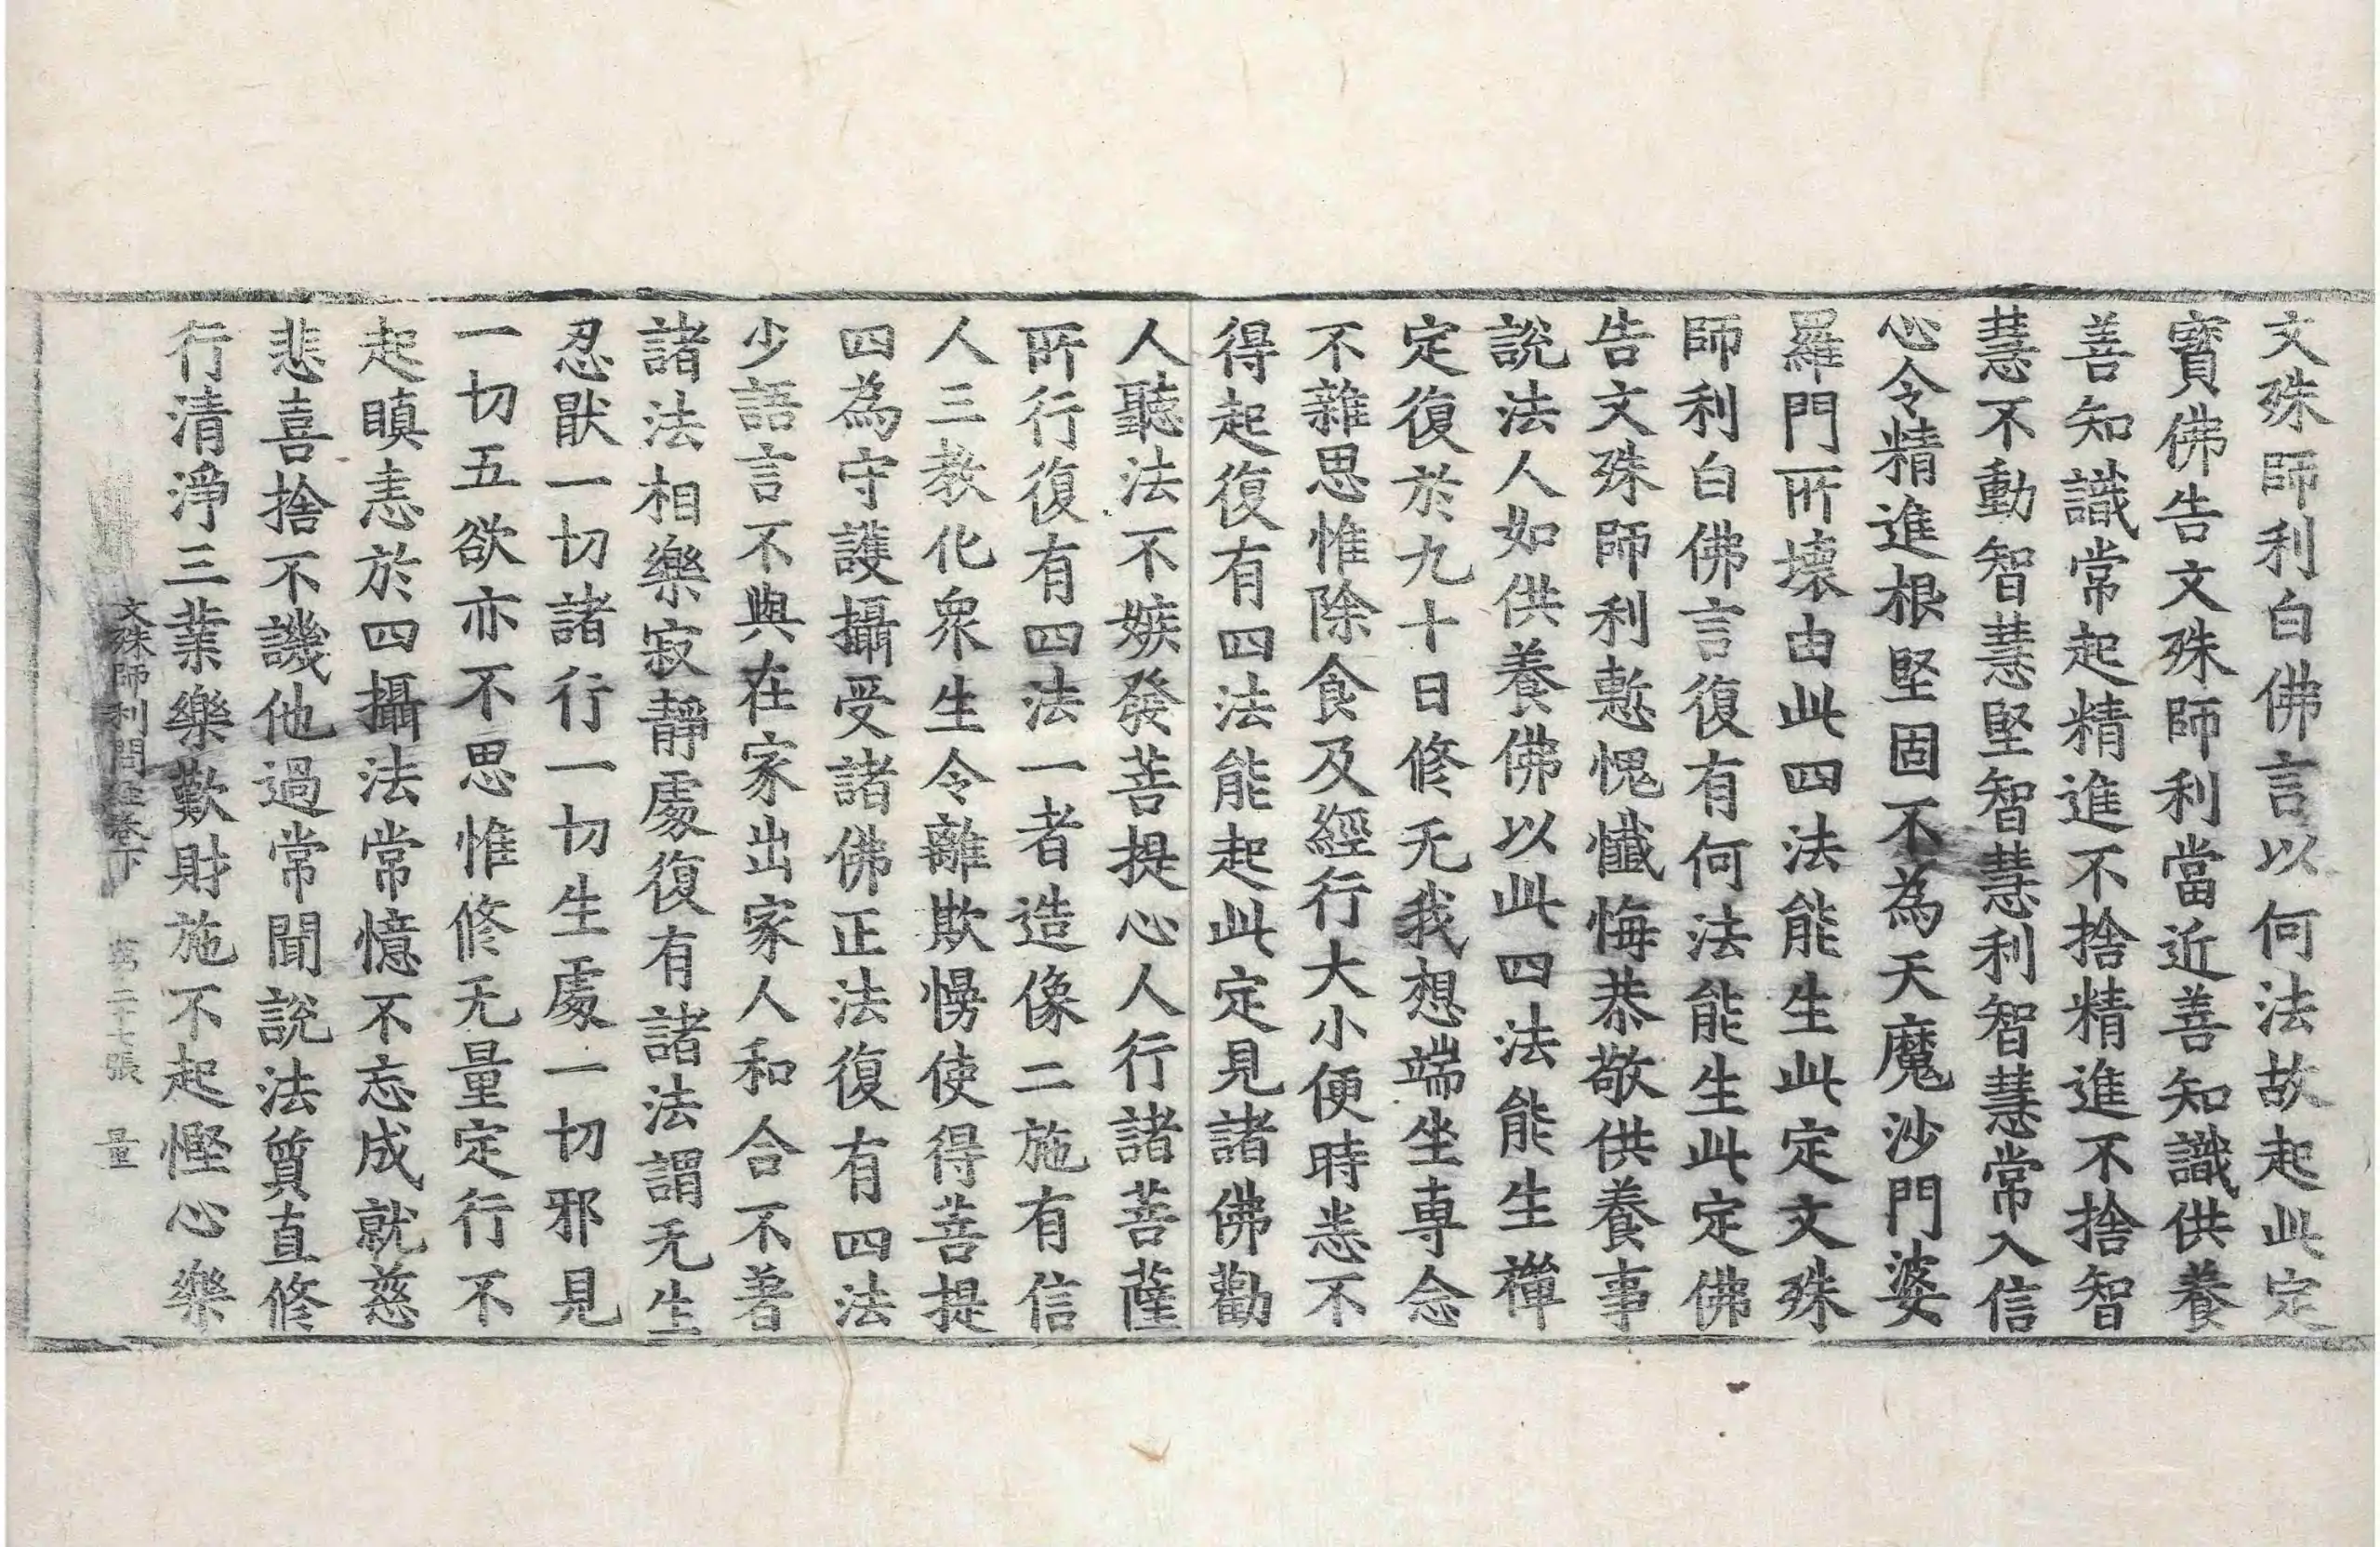 文殊師利白佛言以何法故起此定
寶佛告文殊師利當近善知識供養
善知識常起精進不捨精進不捨智
慧不動智慧堅智慧利智慧常入信
心令精進根堅固不為天魔沙門婆
羅門所壞由此四法能生此定文殊
師利白佛言復有何法能生此定佛
告文殊師利慙愧懺悔恭敬供養事
說法人如供養佛以此四法能生禪
定復於九十日修无我想端坐專念
不雜思惟除食及經行大小便時悉不
得起復有四法能起此定見諸佛勸
人聽法不嫉發菩提心人行諸菩薩
所行復有四法一者造像二施有信
人三教化衆生令離欺慢使得菩提
四為守護攝受諸佛正法復有四法
少語言不與在家出家人和合不著
諸法相樂寂靜處復有諸法謂无生
忍猒一切諸行一切生處一切邪見
一切五欲亦不思惟修无量定行不
起瞋恚於四攝法常憶不忘成就慈
悲喜捨不譏他過常聞說法質直修
行清淨三業樂歎財施不起慳心樂
文殊師利問經卷下 第二十七張 量